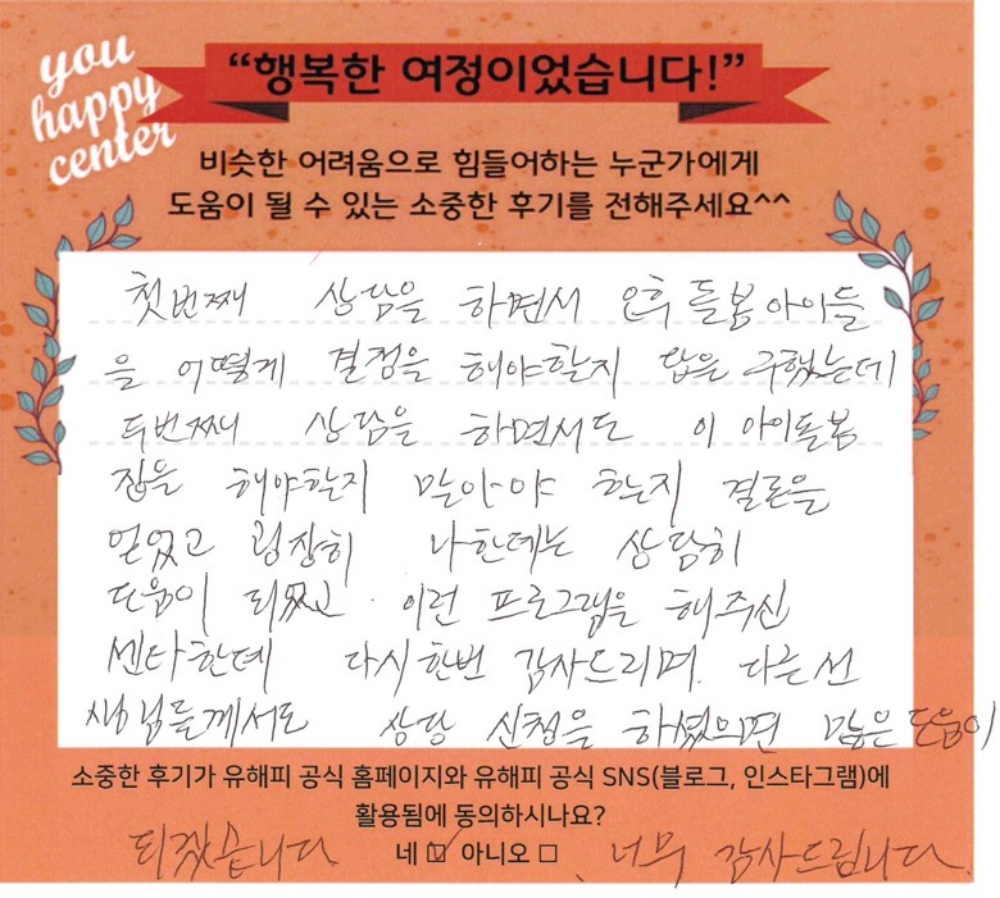 you
happy
center
“행복한 여정이었습니다!”
비슷한 어려움으로 힘들어하는 누군가에게
도움이 될 수 있는 소중한 후기를 전해주세요^^
첫번째 상담을 하면서 오후 돌봄 아이들
을 어떻게 결정을 해야할지 답을 구했는데
두번째 상담을 하면서도 이 아이돌봄
집을 해야할지 말아야 할지 결론을
얻었고 굉장히 나한데는 상담히
도움이 되었고 이런 프로그램을 해주신
센타한데 다시한번 감사드리며. 다른선
생님들께서도 상당 신청을 하셨으면 많은 도움이
소중한 후기가 유해피 공식 홈페이지와 유해피 공식 SNS(블로그, 인스타그램)에
활용됨에 동의하시나요?
되겠습니다 네 ☑ 아니오 □ 너무 감사드립니다.